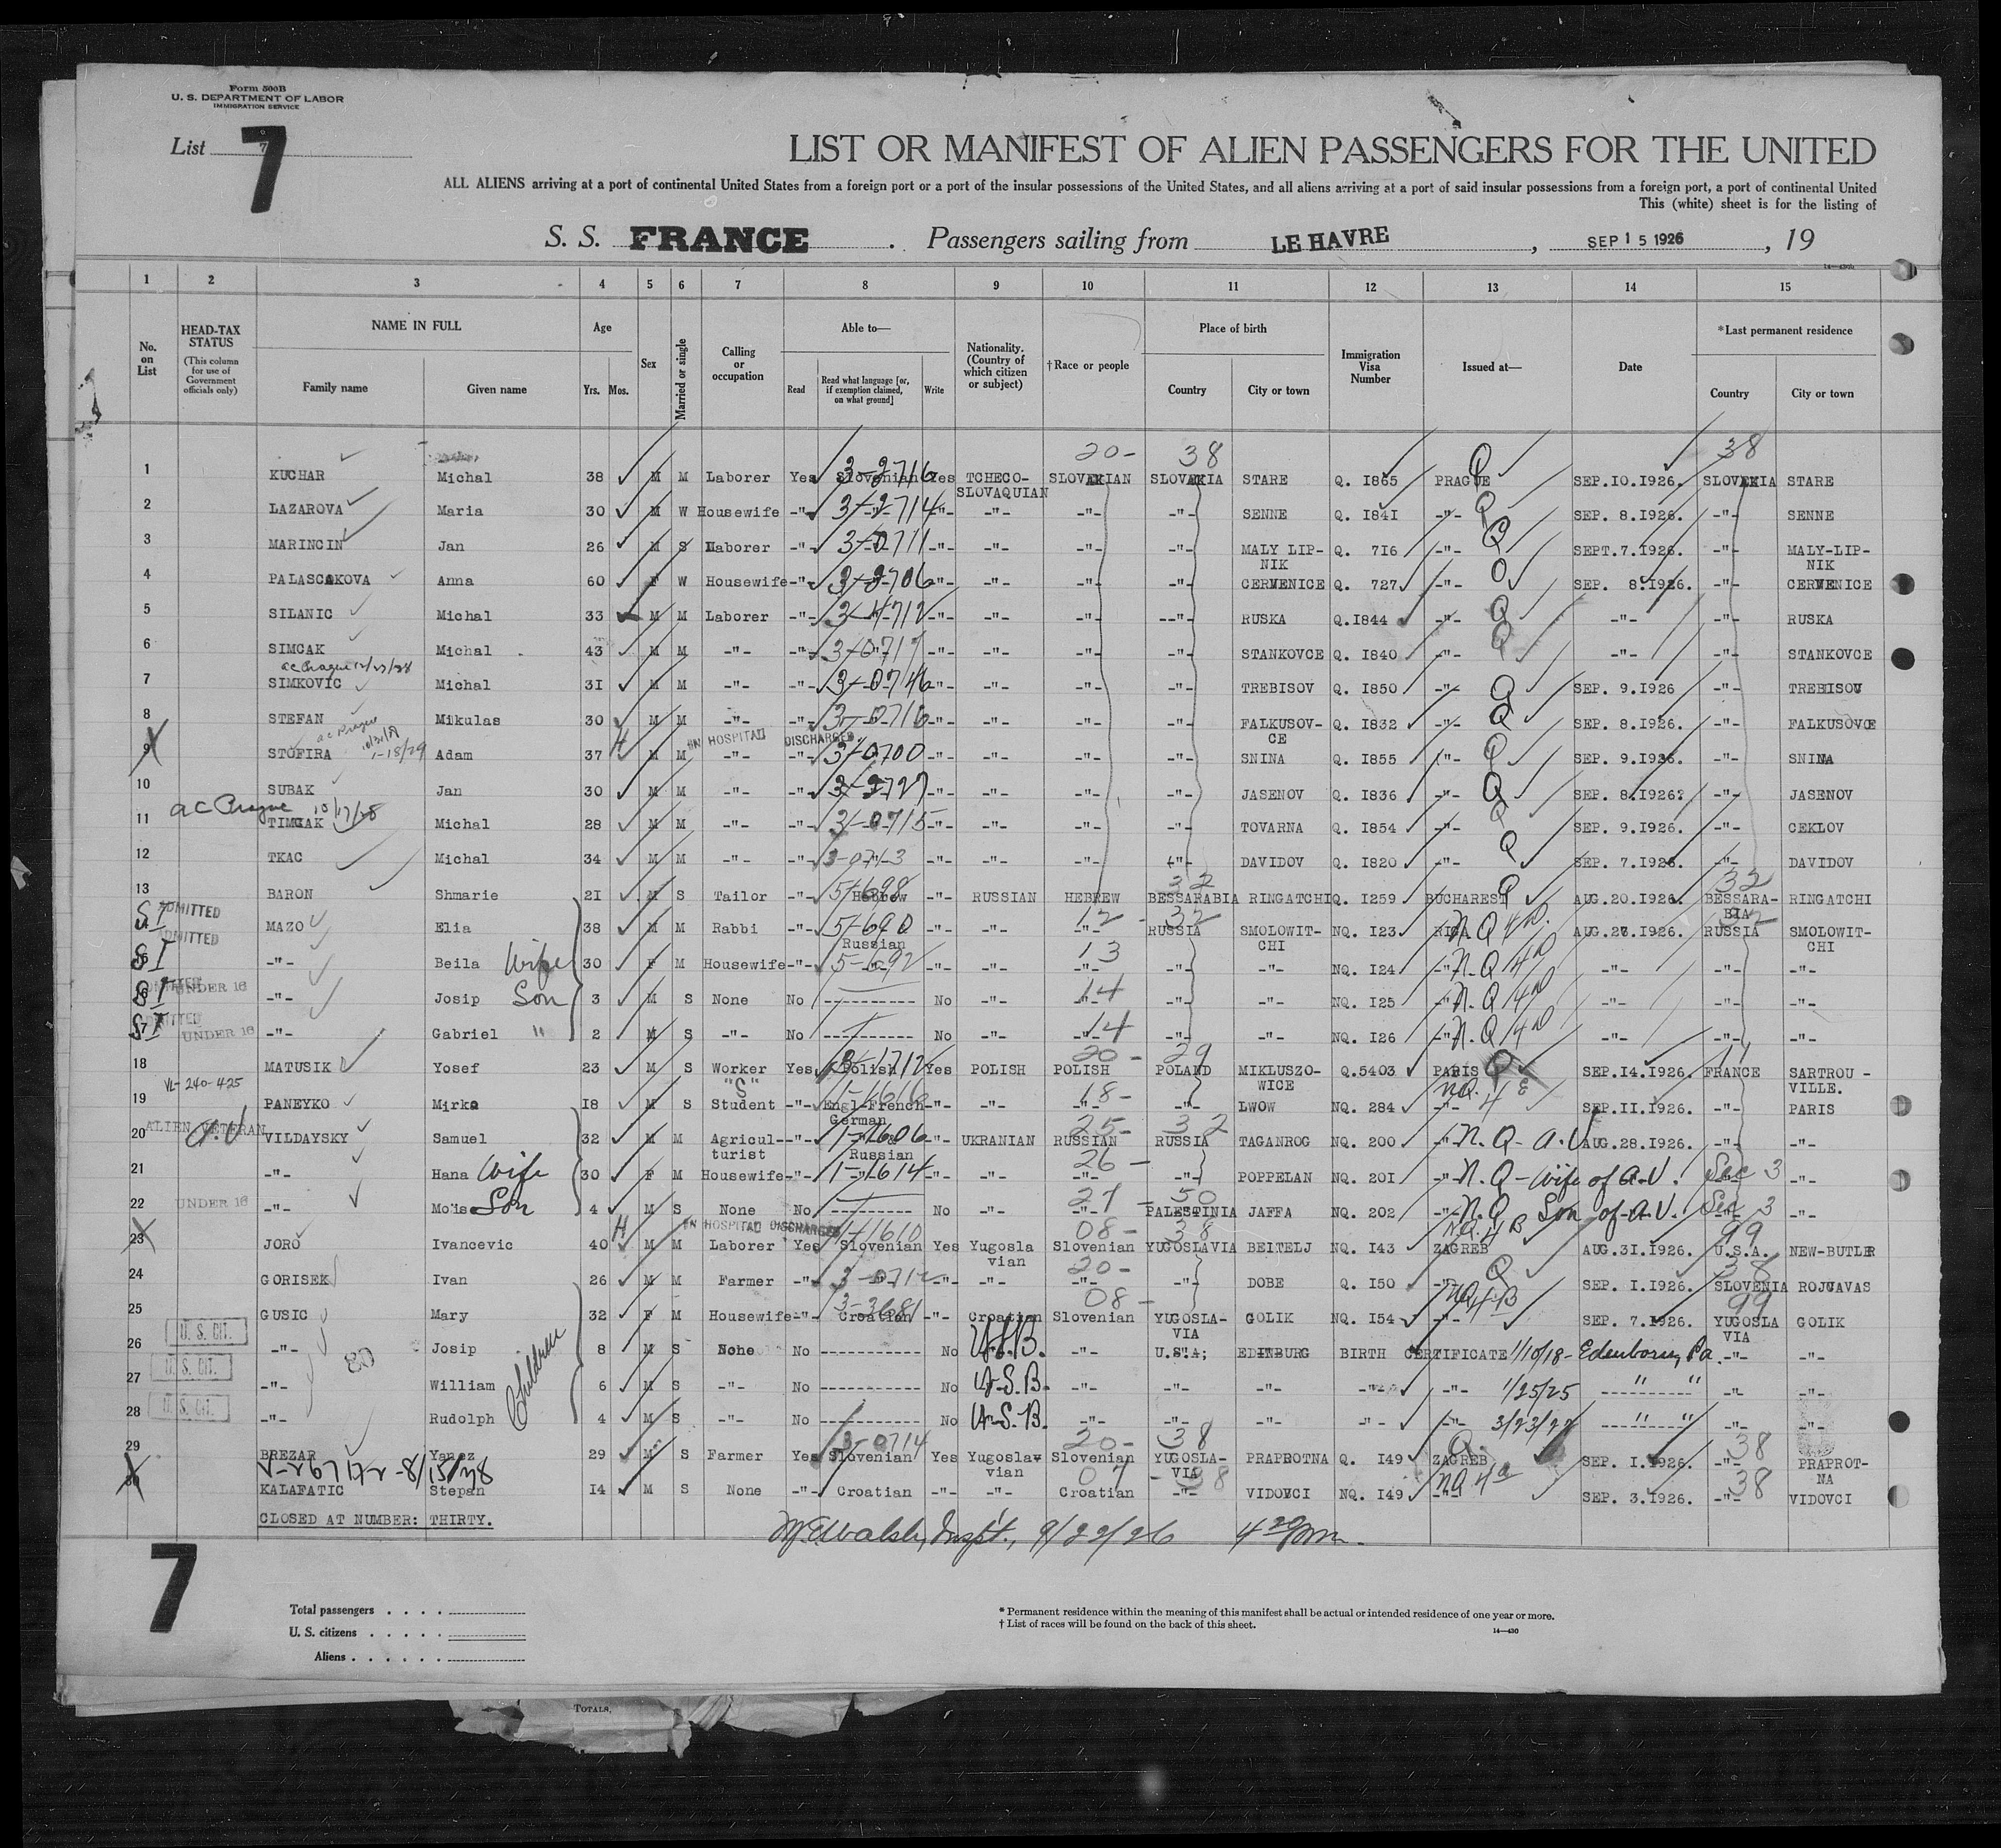 Form 500B
U. S. DEPARTMENT OF LABOR
IMMIGRATION SERVICE
List 7
7
LIST OR MANIFEST OF ALIEN PASSENGERS FOR THE UNITED
ALL ALIENS arriving at a port of continental United States from a foreign port or a port of the insular possessions of the United States, and all aliens arriving at a port of said insular possessions from a foreign port, a port of continental United
This (white) sheet is for the listing of
S. S. FRANCE . Passengers sailing from LE HAVRE , SEP 15 1926 , 19
1 2 3 4 5 6 7 8 9 10 11 12 13 14 15
No. on List
HEAD-TAX STATUS
(This column for use of Government officials only)
NAME IN FULL
Family name Given name
Age
Yrs. Mos.
Sex
Married or single
Calling or occupation
Able to—
Read
Read what language [or, if exemption claimed, on what ground]
Write
Nationality. (Country of which citizen or subject)
†Race or people
Place of birth
Country City or town
Immigration Visa Number
Issued at—
Date
*Last permanent residence
Country City or town
20- 38 38
1 KUCHAR Michal 38 M M Laborer Yes Slovenian Yes TCHECO-SLOVAQUIAN SLOVAKIAN SLOVAKIA STARE Q. I865 PRAGUE Q SEP.10.1926. SLOVAKIA STARE
2 LAZAROVA Maria 30 M W Housewife -"- 3-2714 -"- -"- -"- -"- SENNE Q. I84I -"- Q SEP. 8.1926. -"- SENNE
3 MARINCIN Jan 26 M S Laborer -"- 3-0711 -"- -"- -"- -"- MALY LIP-NIK Q. 7I6 -"- Q SEPT.7.1926. -"- MALY-LIP-NIK
4 PALASCAKOVA Anna 60 F W Housewife -"- 3-2706 -"- -"- -"- -"- CERVENICE Q. 727 -"- Q SEP. 8.1926. -"- CERVENICE
5 SILANIC Michal 33 M M Laborer -"- 3-4712 -"- -"- -"- -"- RUSKA Q.I844 -"- Q -"- -"- RUSKA
6 SIMCAK Michal 43 M M -"- -"- 3-0717 -"- -"- -"- -"- STANKOVCE Q. I840 -"- Q -"- -"- STANKOVCE
ac Prague 12/27/28
7 SIMKOVIC Michal 3I M M -"- -"- 3-0746 -"- -"- -"- -"- TREBISOV Q. I850 -"- Q SEP. 9.1926 -"- TREBISOV
8 STEFAN Mikulas 30 M M -"- -"- 3-0716 -"- -"- -"- -"- FALKUSOV-CE Q. I832 -"- Q SEP. 8.1926. -"- FALKUSOVCE
ac Prague 1-18/29
H IN HOSPITAL DISCHARGED
9 STOFIRA Adam 37 M M -"- -"- 3-0700 -"- -"- -"- -"- SNINA Q. I855 -"- Q SEP. 9.1926. -"- SNINA
10 SUBAK Jan 30 M M -"- -"- 3-2727 -"- -"- -"- -"- JASENOV Q. I836 -"- Q SEP. 8.1926 -"- JASENOV
ac Prague 10/17/28
11 TIMCAK Michal 28 M M -"- -"- 3-0715 -"- -"- -"- -"- TOVARNA Q. I854 -"- Q SEP. 9.1926. -"- CEKLOV
12 TKAC Michal 34 M M -"- -"- 3-0713 -"- -"- -"- -"- DAVIDOV Q. I820 -"- Q SEP. 7.1926. -"- DAVIDOV
32 32
13 BARON Shmarie 2I M S Tailor -"- 5-698 Hebrew -"- RUSSIAN HEBREW BESSARABIA RINGATCHI Q. I259 BUCHAREST Q AUG.20.1926. BESSARA-BIA RINGATCHI
SI ADMITTED MAZO Elia 38 M M Rabbi -"- 5-690 -"- -"- 12 -"- 32 RUSSIA SMOLOWIT-CHI NQ. I23 RIGA N.Q 4D AUG.27.1926. 32 RUSSIA SMOLOWIT-CHI
SI ADMITTED -"- Beila Wife 30 F M Housewife -"- Russian 5-692 -"- -"- 13 -"- -"- -"- NQ. I24 -"- N.Q 4D -"- -"- -"-
SI UNDER 16 -"- Josip Son 3 M S None No ---------- No -"- 14 -"- -"- -"- NQ. I25 -"- N.Q 4D -"- -"- -"-
SI 17 ADMITTED UNDER 16 -"- Gabriel " 2 M S -"- No ---------- No -"- 14 -"- -"- -"- NQ. I26 -"- N.Q 4D -"- -"- -"-
20- 29
18 MATUSIK Yosef 23 M S Worker Yes 3-1712 Polish Yes POLISH POLISH POLAND MIKLUSZO-WICE Q.5403 PARIS Q SEP.14.1926. FRANCE SARTROU-VILLE.
VL-240-425 "S" 18- NQ. 4 E
19 PANEYKO Mirko I8 M S Student -"- Engl-French German -"- -"- -"- -"- LWOW NQ. 284 -"- SEP.II.1926. -"- PARIS
25- 32
20 ALIEN VETERAN A.V VILDAYSKY Samuel 32 M M Agricul-turist -"- 1-1606 Russian -"- UKRANIAN RUSSIAN RUSSIA TAGANROG NQ. 200 -"- N.Q-A.V AUG.28.1926. -"- -"-
21 -"- Hana Wife 30 F M Housewife -"- 1-1614 -"- -"- 26- -"- -"- POPPELAN NQ. 20I -"- N.Q-Wife of A.V. Sec 3 -"-
22 UNDER 16 -"- Moïs Son 4 M S None No ---------- No -"- 27 -"- 50 PALESTINIA JAFFA NQ. 202 -"- N.Q Son of A.V. Sec 3 -"-
H IN HOSPITAL DISCHARGED 08- 38 NQ. 4 B 99
23 JORO Ivancevic 40 M M Laborer Yes 1-1610 Slovenian Yes Yugoslavian Slovenian YUGOSLAVIA BEITELJ NQ. I43 ZAGREB AUG.3I.1926. U.S.A. NEW-BUTLER
20- 38
24 GORISEK Ivan 26 M M Farmer -"- 3-0712 -"- -"- -"- -"- DOBE Q. I50 -"- Q SEP. I.1926. SLOVENIA ROJGAVAS
08- NQ 4-B 99
25 GUSIC Mary 32 F M Housewife -"- 3-3681 Croatian -"- Croatian Slovenian YUGOSLA-VIA GOLIK NQ. I54 -"- SEP. 7.1926. YUGOSLAVIA GOLIK
26 U. S. CIT. -"- Josip 8 M S None No ---------- No U.S.B. -"- U.S.A; EDINBURG BIRTH CERTIFICATE 1/10/18- Edenborn, Pa. -"- -"-
80 Children
27 U. S. CIT. -"- William 6 M S -"- No ---------- No U.S.B. -"- -"- -"- -"- -"- 1/25/25 -"- -"- -"-
28 U. S. CIT. -"- Rudolph 4 M S -"- No ---------- No U.S.B. -"- -"- -"- -"- -"- 3/23/22 -"- -"- -"-
20- 38 38
29 BREZAR Yanez 29 M S Farmer Yes 3-0714 Slovenian Yes Yugoslavvian Slovenian YUGOSLA-VIA PRAPROTNA Q. I49 ZAGREB Q. SEP. I.1926. -"- PRAPROT-NA
V-267172-8/15/28 07- 38 NQ 4a 38
30 KALAFATIC Stepan I4 M S None -"- Croatian -"- -"- Croatian -"- VIDOVCI NQ. I49 -"- SEP. 3.1926. -"- VIDOVCI
CLOSED AT NUMBER: THIRTY.
M.E.Walsh, Inspt., 9/22/26 4 20 pm.
7
Total passengers . . . .
U. S. citizens . . . . .
Aliens . . . . . .
* Permanent residence within the meaning of this manifest shall be actual or intended residence of one year or more.
† List of races will be found on the back of this sheet.
14—430
TOTALS,